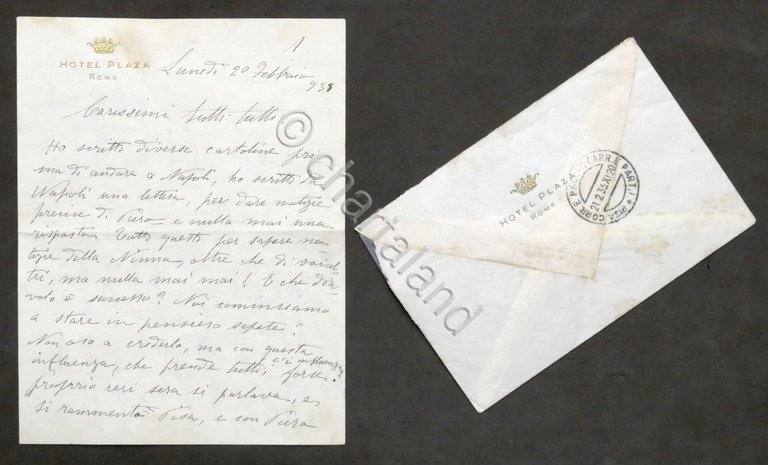 1
HOTEL PLAZA
ROME
Lunedì 20 Febbraio
933
Carissimi tutti tutti.
Ho scritto diverse cartoline pri
ma di andare a Napoli, ho scritto da
Napoli una lettera, per dare notizie
prense di Piero e nulla mai una
risposta. Tutto questo per sapere no
tizie della Ninna, oltre che di voial
tri, ma nulla mai mai! E che dia
volo è successo? Noi cominciamo
a stare in pensiero sapete!
Non oso a crederlo, ma con questa
influenza, che prende tutti, forse
c'è influenza?
proprio ieri sera si parlava, e
si rammentò Pisa, e con Piero
HOTEL PLAZA
ROME
PISA CORR. E PART.
21.2.33.XI 20
© chartaland